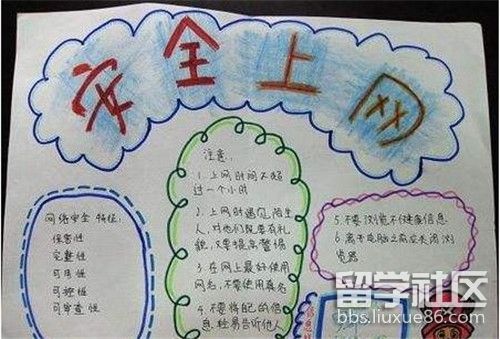 安全上网
网络安全 特征:
保密性
完整性
可用性
可控性
可审查性
注意:
1.上网时间不超
过一个小时
2.上网时遇见陌生
人,对他们既要有礼
貌,又要提高警惕
3.在网上最好使用
网名,不要使用真名
4.不要将自己的信
息轻易告诉他人
5.不要浏览不健康信息
6.离开电脑之前应关闭浏
览器
留学社区
bbs.liuxue86.com